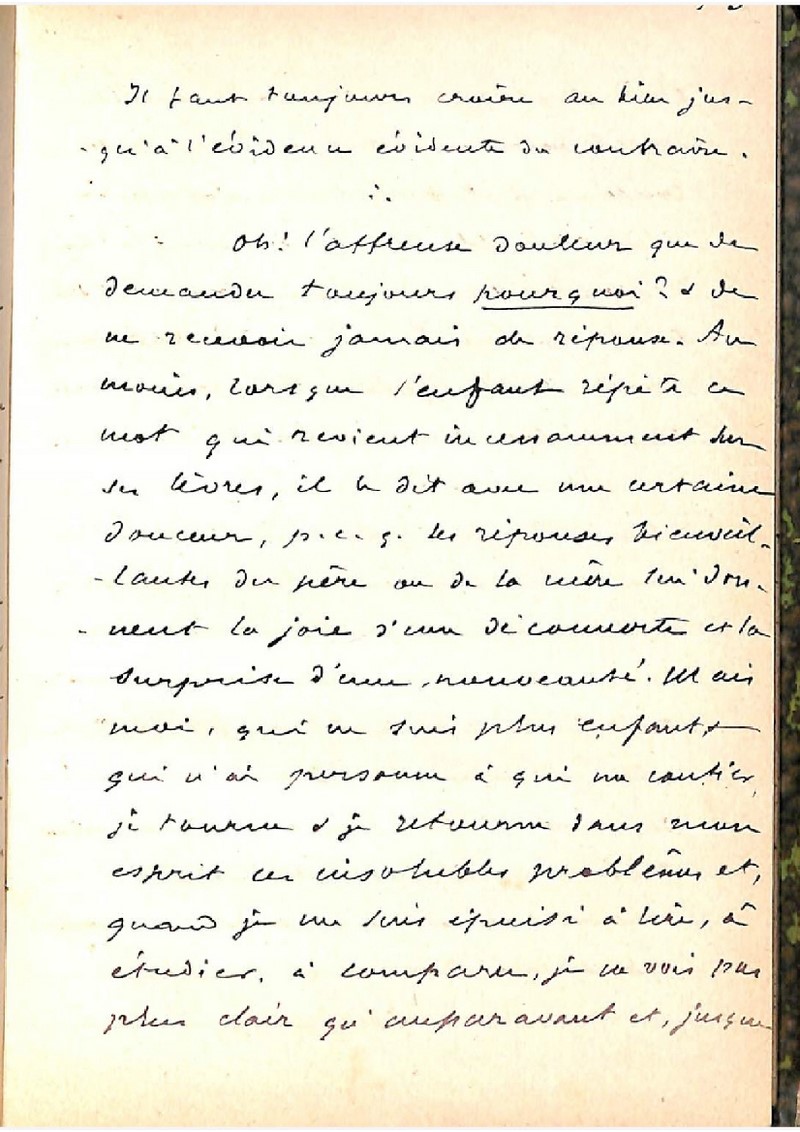 Il faut toujours croire au bien jus-
-qu'à l'évidence évidente du contraire.
∴
Oh! l'affreuse douleur que de
demander toujours pourquoi? & de
ne recevoir jamais de réponse. Au
moins, lorsque l'enfant répète ce
mot qui revient incessamment sur
ses lèvres, il le dit avec une certaine
douceur, p. c. q. les réponses bienveil-
-lantes du père ou de la mère lui don-
-nent la joie d'une découverte et la
surprise d'une nouveauté. Mais
moi, qui ne suis plus enfant, &
qui n'ai personne à qui me confier,
je tourne & je retourne dans mon
esprit ces insolubles problèmes et,
quand je me suis épuisé à lire, à
étudier, à comparer, je ne vois pas
plus clair qu'auparavant et, jusque